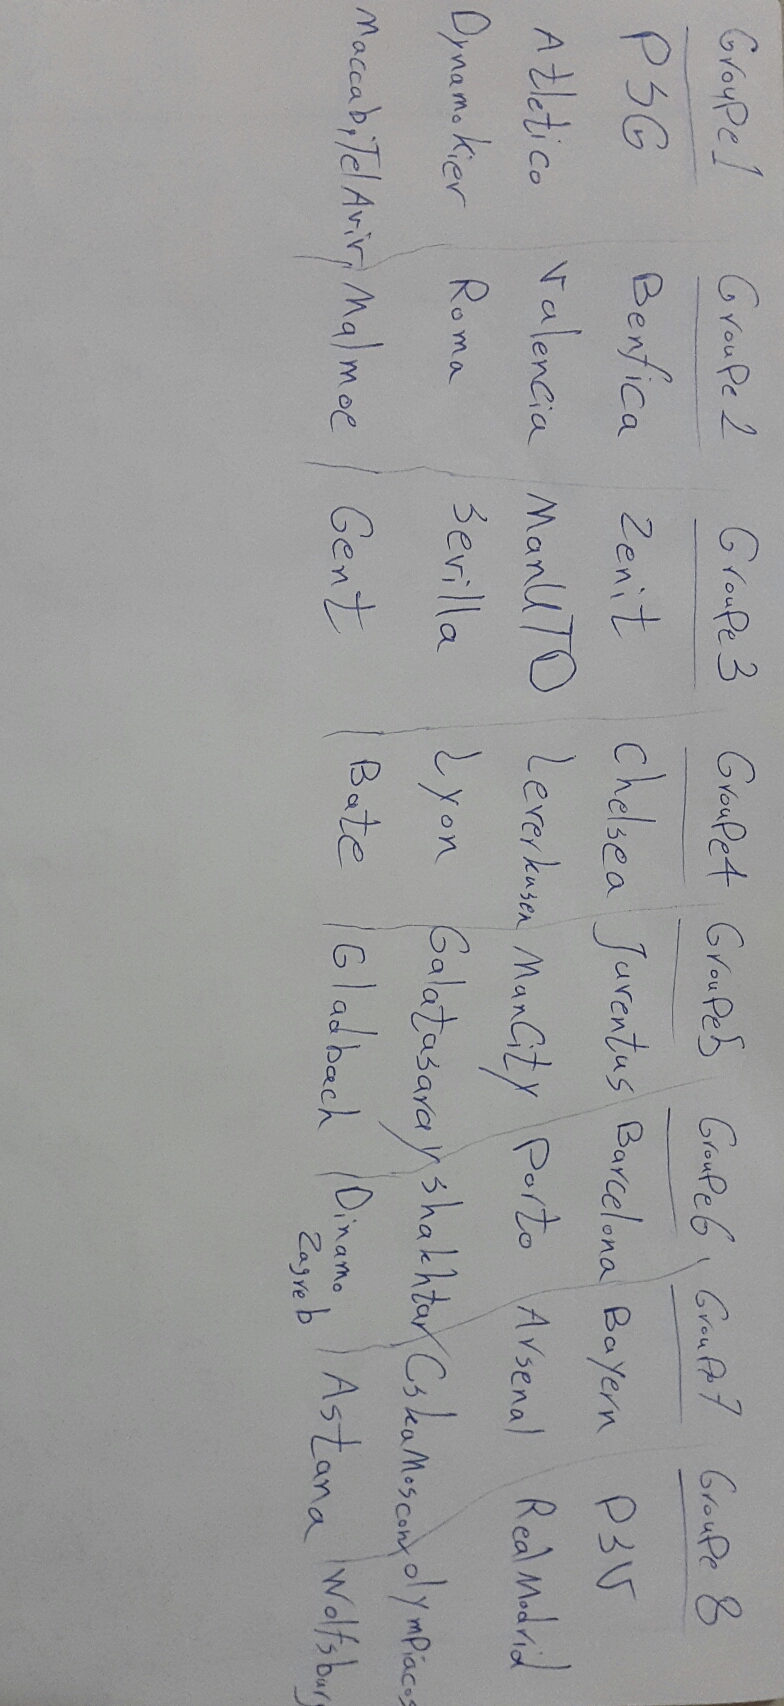 Groupe 1 Groupe 2 Groupe 3 Groupe 4 Groupe 5 Groupe 6 Groupe 7 Groupe 8
PSG Benfica Zenit Chelsea Juventus Barcelona Bayern PSV
Atletico Valencia Man UTD Leverkusen ManCity Porto Arsenal Real Madrid
Dynamo kiev Roma Sevilla Lyon Galatasaray Shakhtar Cska Moscow Olympiacos
Maccabi Tel Aviv Malmoe Gent Bate Gladbach Dinamo Zagreb Astana Wolfsburg